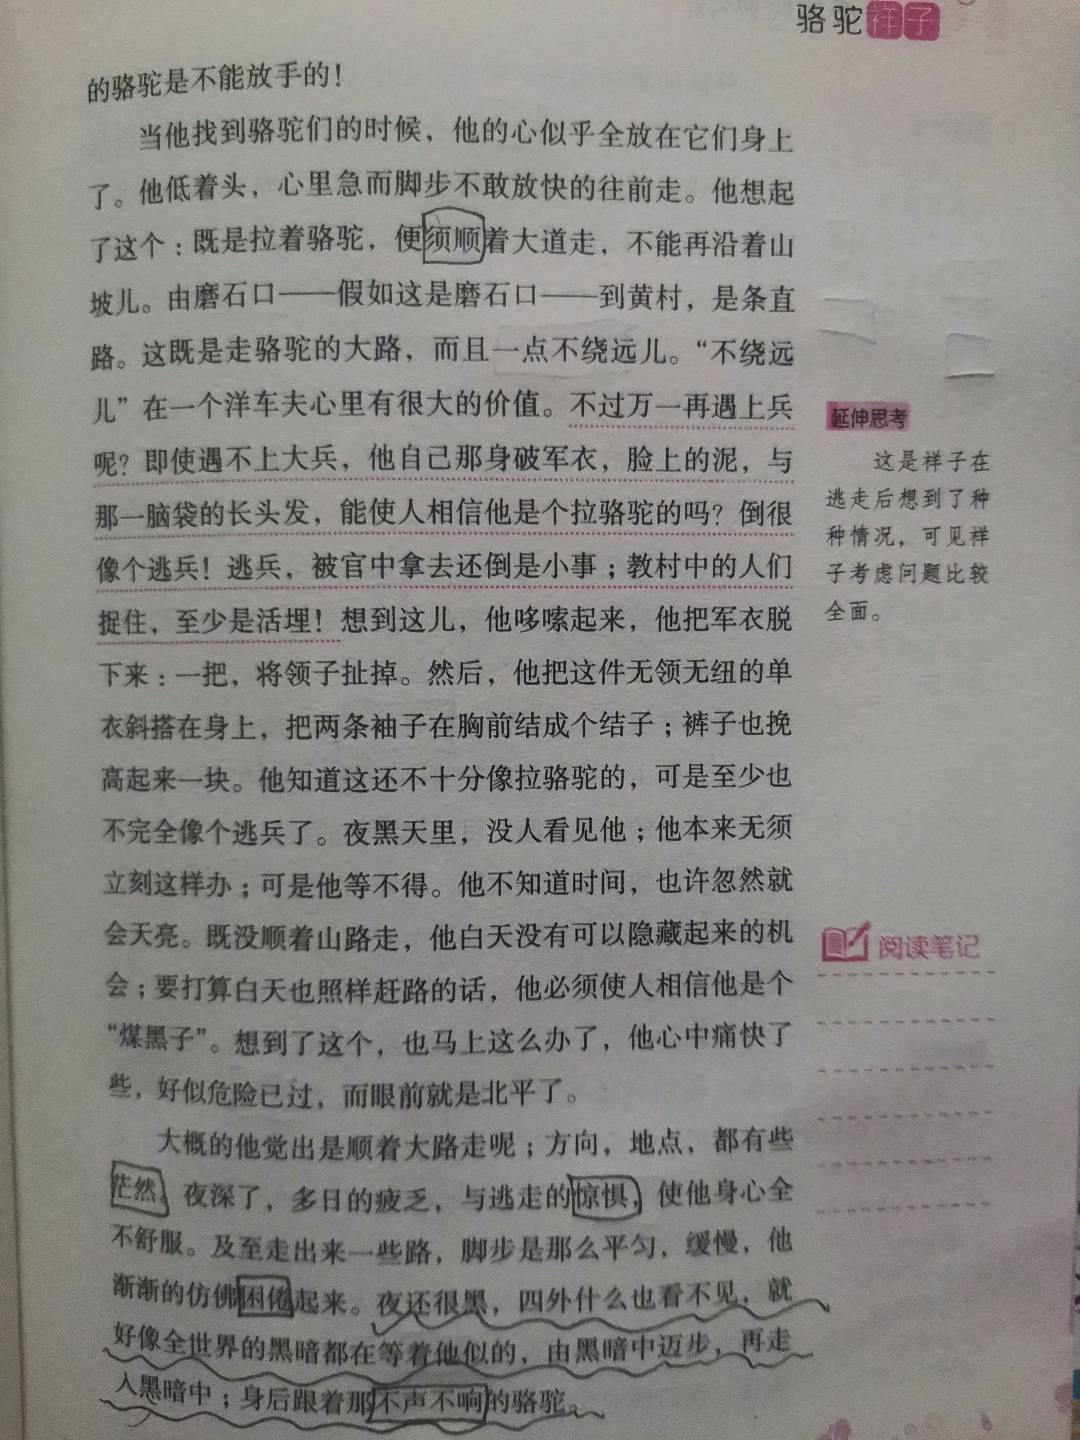 骆驼祥子
的骆驼是不能放手的！
当他找到骆驼们的时候，他的心似乎全放在它们身上
了。他低着头，心里急而脚步不敢放快的往前走。他想起
了这个：既是拉着骆驼，便须顺着大道走，不能再沿着山
坡儿。由磨石口——假如这是磨石口——到黄村，是条直
路。这既是走骆驼的大路，而且一点不绕远儿。“不绕远
儿”在一个洋车夫心里有很大的价值。不过万一再遇上兵
呢？即使遇不上大兵，他自己那身破军衣，脸上的泥，与
那一脑袋的长头发，能使人相信他是个拉骆驼的吗？倒很
像个逃兵！逃兵，被官中拿去还倒是小事；教村中的人们
捉住，至少是活埋！想到这儿，他哆嗦起来，他把军衣脱
下来：一把，将领子扯掉。然后，他把这件无领无纽的单
衣斜搭在身上，把两条袖子在胸前结成个结子；裤子也挽
高起来一块。他知道这还不十分像拉骆驼的，可是至少也
不完全像个逃兵了。夜黑天里，没人看见他；他本来无须
立刻这样办；可是他等不得。他不知道时间，也许忽然就
会天亮。既没顺着山路走，他白天没有可以隐藏起来的机
会；要打算白天也照样赶路的话，他必须使人相信他是个
“煤黑子”。想到了这个，也马上这么办了，他心中痛快了
些，好似危险已过，而眼前就是北平了。
大概的他觉出是顺着大路走呢；方向，地点，都有些
茫然。夜深了，多日的疲乏，与逃走的惊惧，使他身心全
不舒服。及至走出来一些路，脚步是那么平匀，缓慢，他
渐渐的仿佛困倦起来。夜还很黑，四外什么也看不见，就
好像全世界的黑暗都在等着他似的，由黑暗中迈步，再走
入黑暗中；身后跟着那不声不响的骆驼。
延伸思考
这是祥子在
逃走后想到了种
种情况，可见祥
子考虑问题比较
全面。
阅读笔记